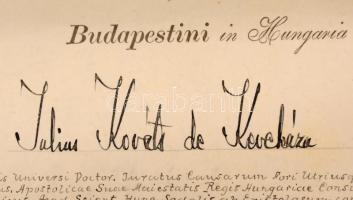 Budapestini in Hungaria
Julius Kováts de Keveháza
is Universi Doctor, Juratus Causarum Fori Utriusq
us, Apostolicae Suae Maiestatis Regis Hungariae Consi